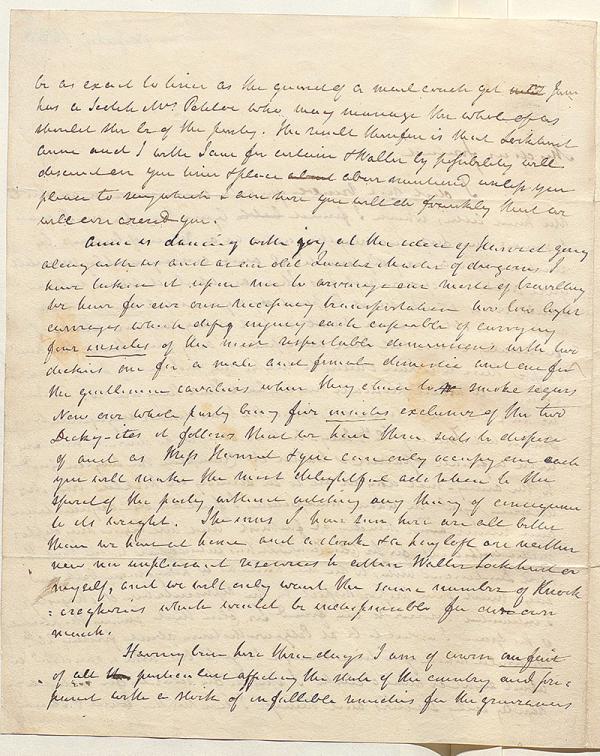 be as exact to time as the guard of a mail coach yet Jane
has a Scotch Mrs. Pebler who may manage the whole of us
should she be of the party. The result therefore is that Lockhart
Anne and I with Jane for certain & Walter by possibility will
descend on you time & place above mentioned unless you
please to say which I am sure you will do frankly that we
will over crowd you.
Anne is dancing with joy at the idea of Harriet going
along with us and as an old Quarter Master of dragoons I
have taken it upon me to arrange our mode of travelling
We have for our own necessary transportation two light
carriages which defy injury each capable of carrying
four insides of the most respectable dimensions with two
dickies one for a male and female domestic and one for
the gentlemen cavaliers when they chuse to smoke segars
Now our whole party being five insides exclusive of the two
Dickey-ites it follows that we have three seats to dispose
of and as Miss Harriet & you can only occupy one each
you will make the most delightful addition to the
spirit of the party without adding any thing of consequence
to its weight. The inns I have seen here are all better
than we have at home and a cloak & a hay loft are neither
new nor unpleasant resources to either Walter Lockhart or
myself, and we will only want the same number of
which would be indispensible for our own
march.
Having been here three days I am of course au fait
of all particulars affecting the state of the country and pre=
pared with a stock of infallible remedies for the grievances